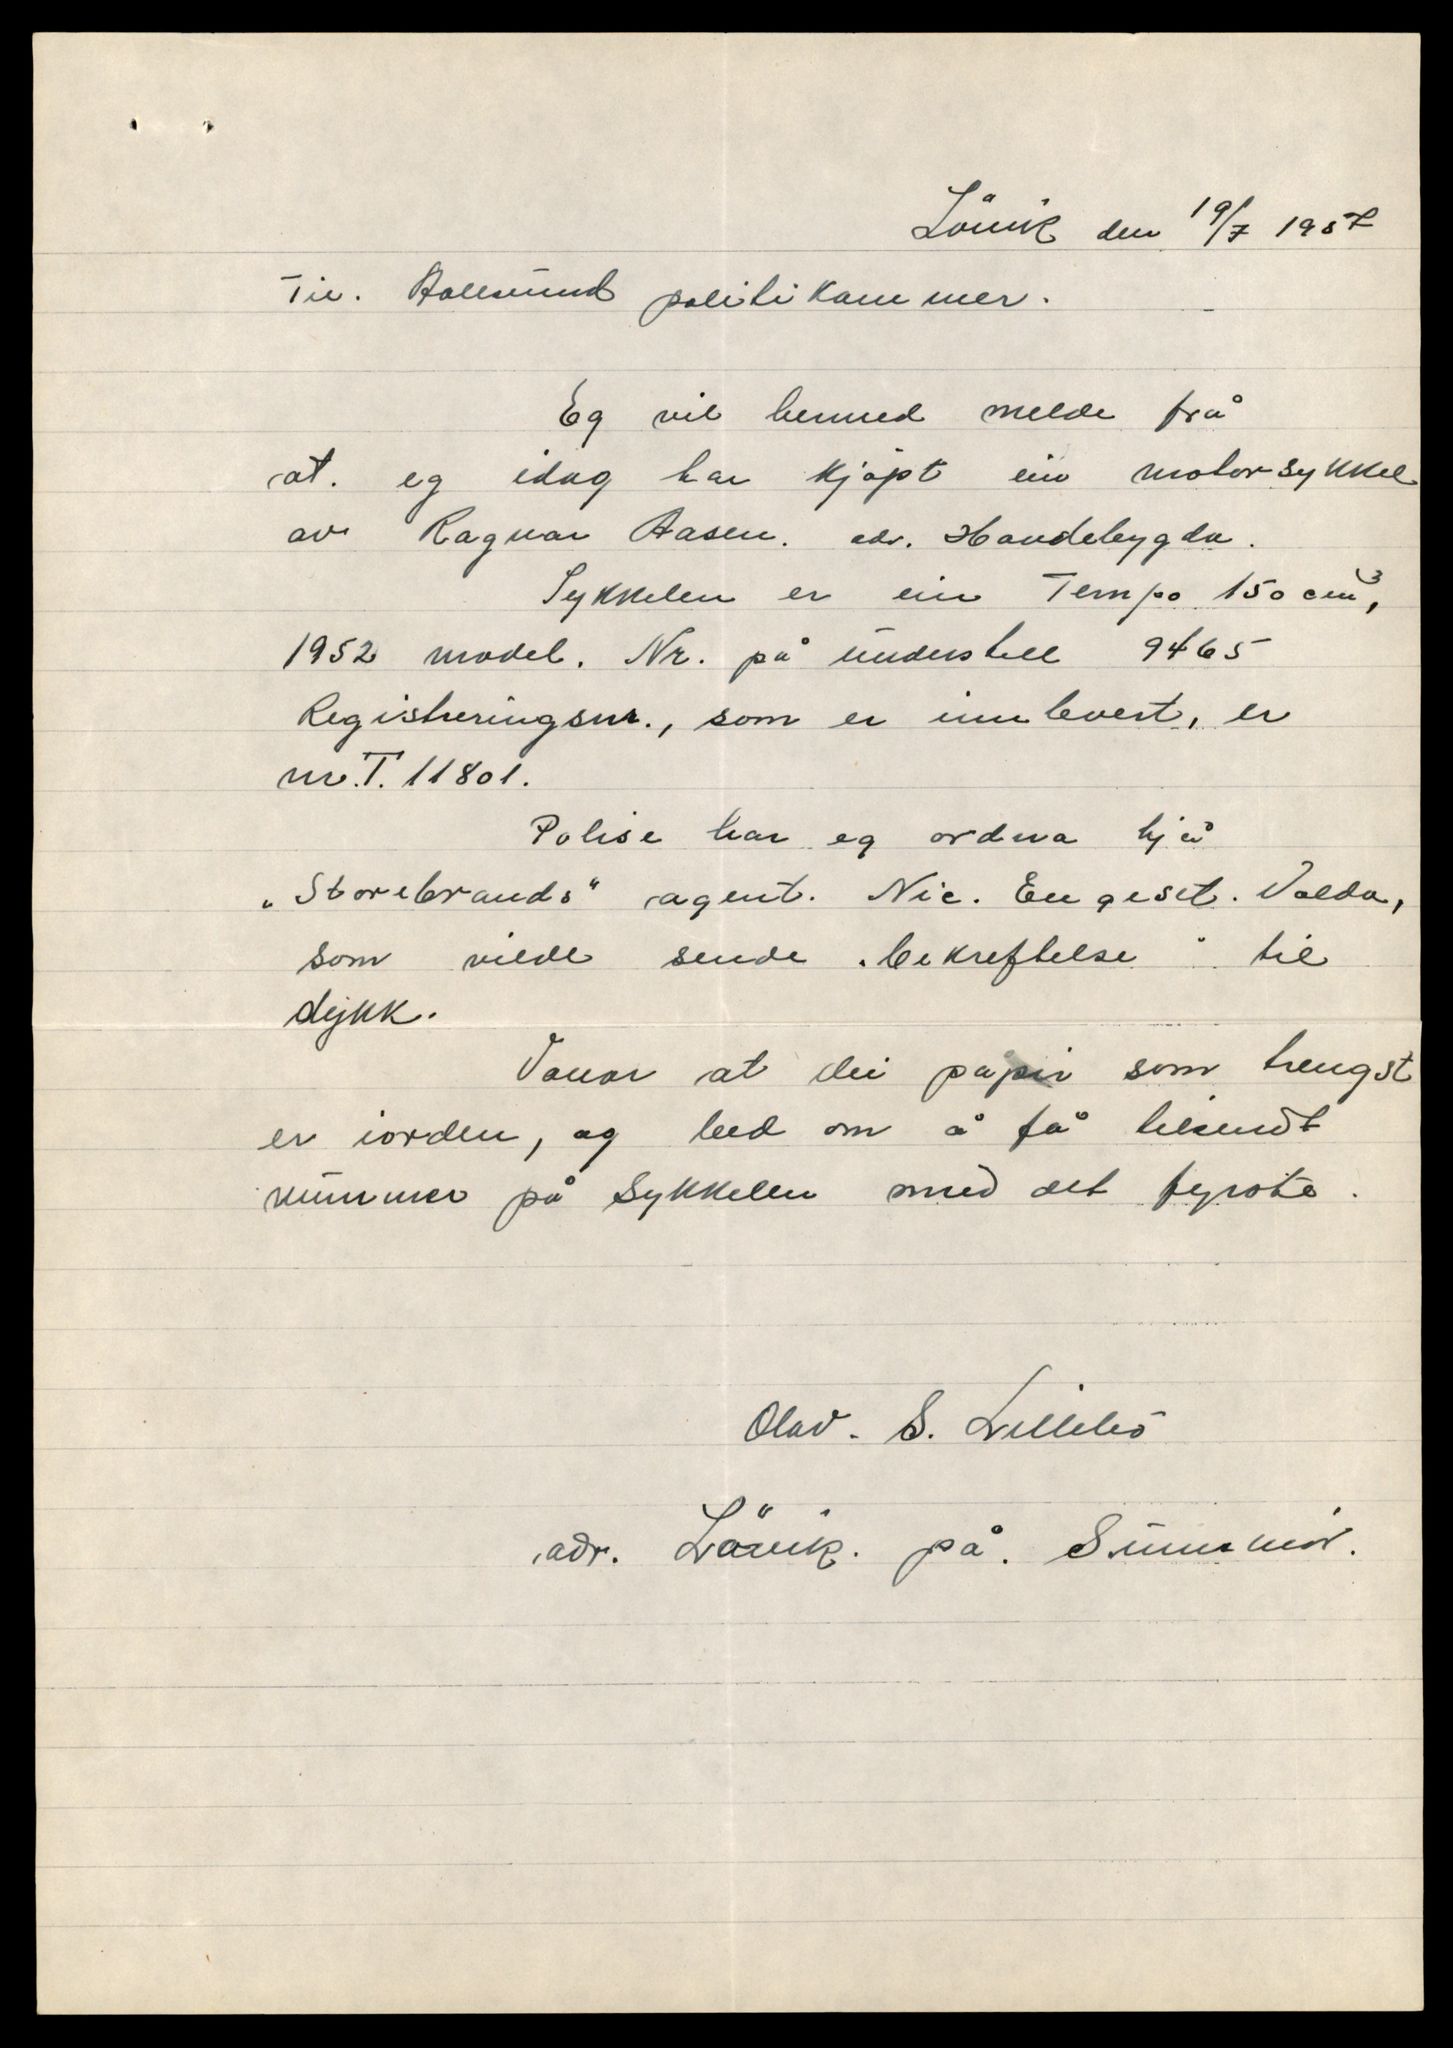 Lövik den 19/7 1957
Til. Aalesund politikammer.
Eg vil hermed melde frå
at. eg idag har kjöpt ein motorsykkel
av Ragnar Aasen. adr. Haudebygda.
Sykkelen er ein Tempo 150 cm³,
1952 model. Nr. på understell 9465
Registreringsnr., som er innlevert, er
nr. T. 11801.
Polise har eg ordna hjå
"Storebrands" agent. Nic. Engeset. Volda,
som vilde sende bekreftelse til
dykk.
Vonar at dei papir som trengst
er iorden, og bed om å få tilsendt
nummer på sykkelen med det fyrste.
Olav. S. Lillebö
adr. Lövik. på. Sunnmör.